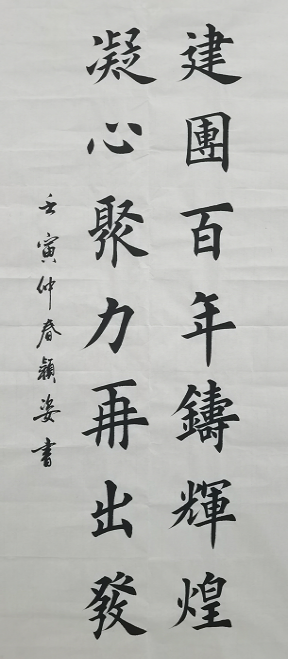 建團百年鑄輝煌
凝心聚力再出發
壬寅仲春穎姿書